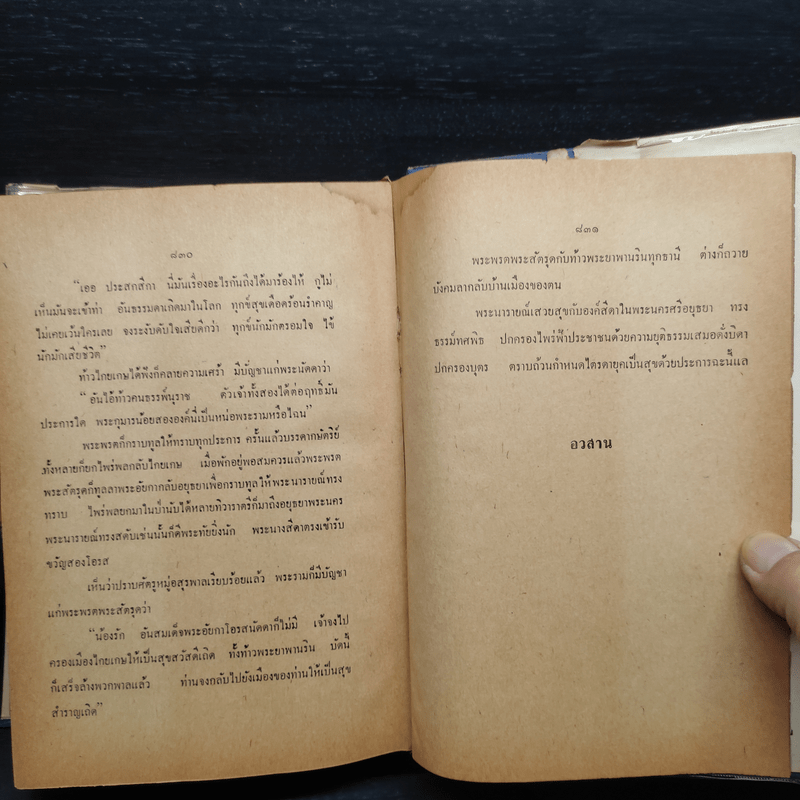 ๘๓๐
“เออ ประสกสีกา นี่มันเรื่องอะไรกันถึงได้มาร้องไห้ กูไม่
เห็นมันจะเข้าท่า อันธรรมดาเกิดมาในโลก ทุกข์สุขเดือดร้อนรำคาญ
ไม่เคยเว้นใครเลย จงระงับดับใจเสียดีกว่า ทุกข์นักมักตรอมใจ ไข้
นักมักเสียชีวิต”
ท้าวไกยเกษได้ฟังก็คลายความเศร้า มีบัญชาแก่พระนัดดาว่า
“อันไอ้ท้าวคนธรรพ์นุราช ตัวเจ้าทั้งสองได้ต่อฤทธิ์มัน
ประการใด พระกุมารน้อยสององค์นี้เป็นหน่อพระรามหรือไฉน”
พระพรตก็กราบทูลให้ทราบทุกประการ ครั้นแล้วบรรดากษัตริย์
ทั้งหลายก็ยกไพร่พลกลับไกยเกษ เมื่อพักอยู่พอสมควรแล้วพระพรต
พระสัตรุดก็ทูลลาพระอัยกากลับอยุธยาเพื่อกราบทูลให้พระนารายณ์ทรง
ทราบ ไพร่พลยกมาในป่านับได้หลายทิวาราตรีก็มาถึงอยุธยาพระนคร
พระนารายณ์ทรงสดับเช่นนั้นก็ดีพระทัยยิ่งนัก พระนางสีดาตรงเข้ารับ
ขวัญสองโอรส
เห็นว่าปราบศัตรูหมู่อสุรพาลเรียบร้อยแล้ว พระรามก็มีบัญชา
แก่พระพรตพระสัตรุดว่า
“น้องรัก อันสมเด็จพระอัยกาโอรสนัดดาก็ไม่มี เจ้าจงไป
ครองเมืองไกยเกษให้เป็นสุขสวัสดีเถิด ทั้งท้าวพระยาพานริน บัดนี้
ก็เสร็จล้างพวกพาลแล้ว ท่านจงกลับไปยังเมืองของท่านให้เป็นสุข
สำราญเถิด”
๘๓๑
พระพรตพระสัตรุดกับท้าวพระยาพานรินทุกธานี ต่างก็ถวาย
บังคมลากลับบ้านเมืองของตน
พระนารายณ์เสวยสุขกับองค์สีดาในพระนครศรีอยุธยา ทรง
ธรรม์ทศพิธ ปกครองไพร่ฟ้าประชาชนด้วยความยุติธรรมเสมอดั่งบิดา
ปกครองบุตร ตราบถ้วนกำหนดไตรดายุคเป็นสุขด้วยประการฉะนี้แล
อวสาน